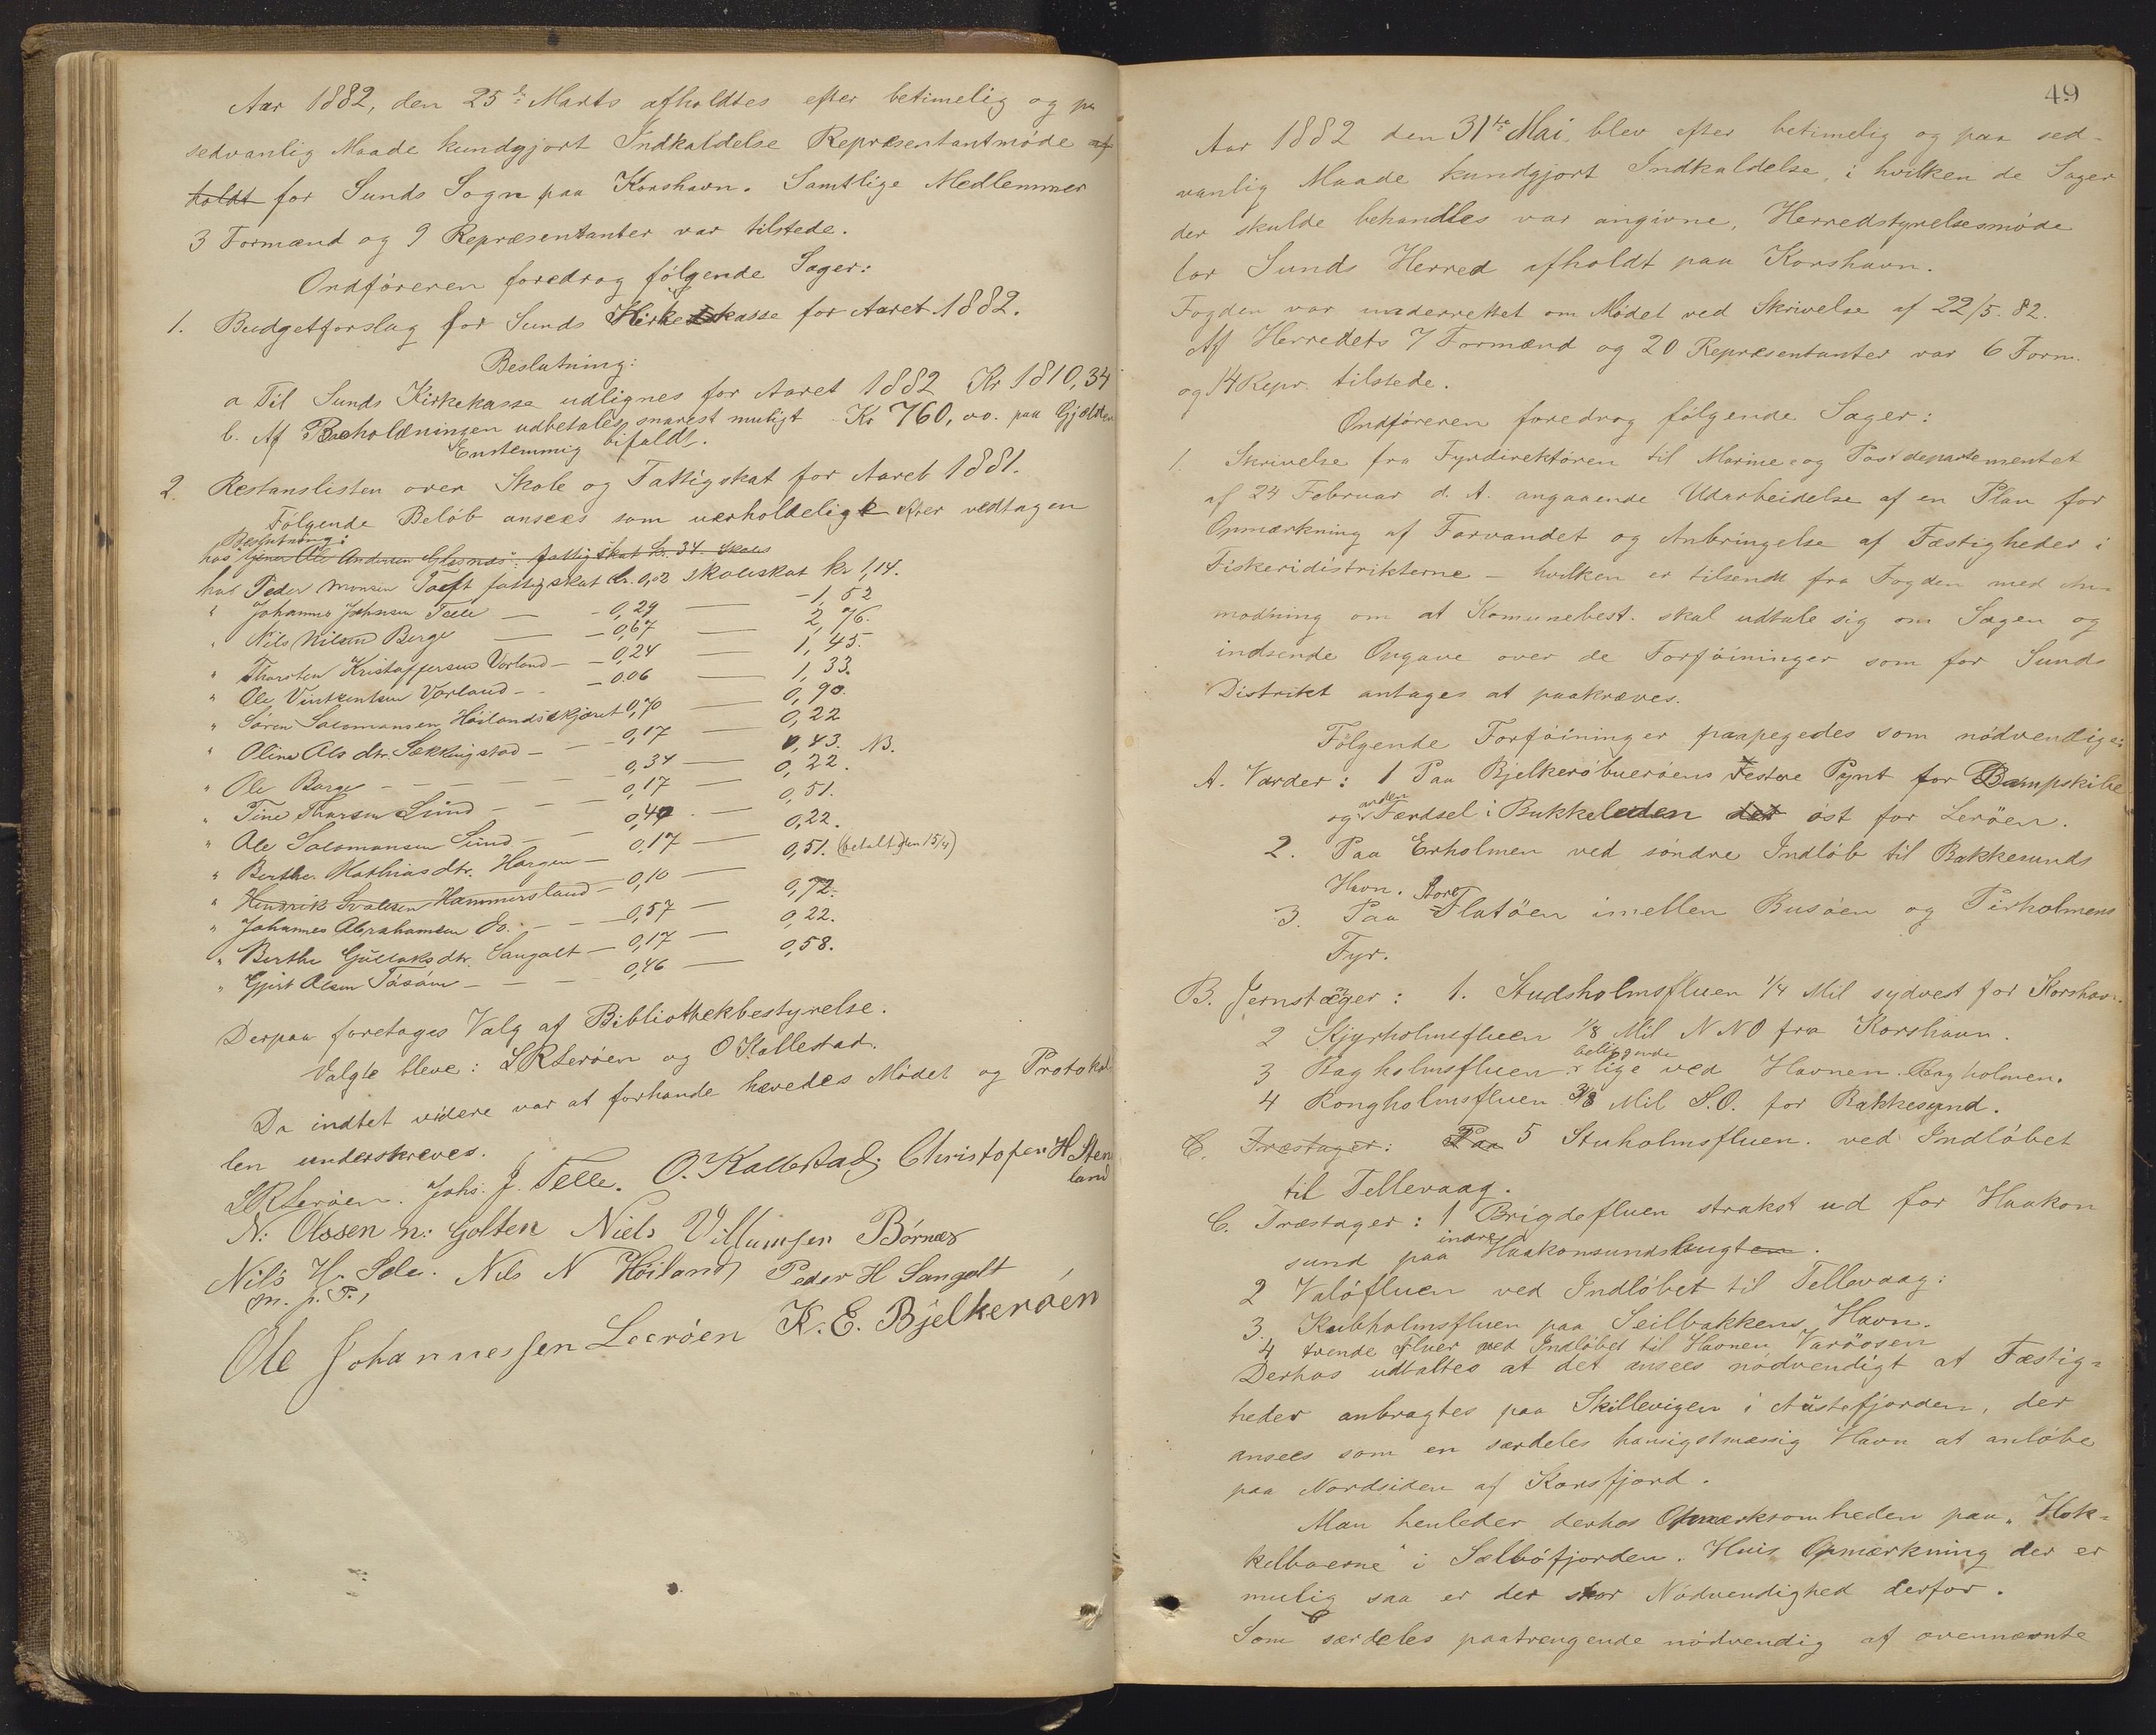 Aar 1882, den 25de Marts afholdtes efter betimelig og pa
sedvanlig Maade kundgjort Indkaldelse Repræsentantmöde af
holdt for Sunds Sogn paa Korshavn. Samtlige Medlemmer
3 Formænd og 9 Repræsentanter var tilstede.
Ordföreren foredrog fölgende Sager:
1. Budgetforslag for Sunds Kirkekasse for Aaret 1882.
Beslutning:
a Til Sunds Kirkekasse udlignes for Aaret 1882 Kr 1810,34
b. Af Beholdningen udbetales snarest muligt Kr 760,00. paa Gjælden
Enstemmig bifaldt.
2. Restanslisten over Skole og Fattigskat for Aaret 1881.
Fölgende Belöb ansees som uerholdelige efter vedtagen
Beslutning:
hos tjener Ole Andersen Glesnæs fattigskat Kr. 34. Skoles
hos Peder Monsen Toft fattigskat kr. 0,02 skoleskat kr 1,14.
" Johannes Johnsen Telle — - 0,29 — - 1,52
" Nils Nilsen Berge — - 0,67 — 2,76.
" Thorsten Kristoffersen Vorland - - 0,24 — 1,45.
" Ole Vintzentsen Vorland - - - 0.06 — 1,33.
" Sören Salomonsen Höilandsskjæret 0,70 — 0,90.
" Oline Ols dtr. Sekkingstad - - 0,17 — 0,22
" Ole Borge - - - 0,34 — 0,43. NB.
" Tine Thorsen Sund - - - 0,17 — 0,22.
" Ole Salomonsen Sund - - 0,40 — 0,51.
" Berthe Mathiasdtr. Horgen - 0,17 — 0,22.
" Hendrik Hammersland - 0,10 — 0,51. (betalt den 15/4)
" Johannes Abrahamsen do. - - 0,57 — 0,72.
" Berthe Gullaksdtr. Sangolt - 0,17 — 0,22.
" Gjert Olsen Tösöen - - - 0,46 — 0,58.
Derpaa foretoges Valg af Bibliothekbestyrelse.
Valgte bleve: LRLeröen og O Kallestad.
Da indtet videre var at forhande hævedes Mödet og Protokol
len underskreves.
LRLeröen. Johs. J. Telle. O. Kallestad. Christofer H Sten
land
N. Olssen n: Golten Niels Villumsen Börnes
Nils H. Sele. Nils N Höiland Peder H Sangolt
m. p. P.,
Ole Johannessen Leeröen K. E. Bjelkeröen
49
Aar 1882 den 31te Mai blev efter betimelig og paa sed-
vanlig Maade kundgjort Indkaldelse, i hvilken de Sager
der skulde behandles var angivne, Herredstyrelsesmöde
for Sunds Herred afholdt paa Korshavn.
Fogden var underrettet om Mödet ved Skrivelse af 22/5. 82.
Af Herredets 7 Formænd og 20 Repræsentanter var 6 Form.
og 14 Repr. tilstede.
Ordföreren foredrog fölgende Sager:
1. Skrivelse fra Fyrdirektören til Marine- og Postdepartementet
af 24 Februar d. A. angaaende Udarbeidelse af en Plan for
Opmærkning af Farvandet og Anbringelse af Fæstigheder i
Fiskeridistrikterne – hvilken er tilsendt fra Fogden med An-
modning om at Komunebest. skal udtale sig om Sagen og
indsende Opgave over de Forföininger som for Sunds
Distrikt antages at paakræves.
Fölgende Forföininger paapegedes som nödvendige:
A. Varder: 1 Paa Bjelkeröbueröens Vestre Pynt for Dampskibe
og anden Færdsel i Bukkeleden det öst for Leröen.
2. Paa Erholmen ved söndre Indlöb til Bakkesunds
Havn.
3. Paa Store Flatöen imellem Busöen og Pirholmens
Fyr.
B. Jernstager: 1. Studsholmsfluen 1/4 Mil sydvest for Korshavn.
2 Skjyrholmsfluen 1/8 Mil NNO fra Korshavn.
3 Bagholmsfluen beliggende lige ved Havnen Bagholmen.
4 Rongholmsfluen 3/8 Mil S.O. for Bakkesund.
C. Træstager: Paa 5 Stuholmsfluen ved Indlöbet
til Tellevaag.
C. Træstager: 1 Brigdefluen strakst ud for Haakon
sund paa indre Haakonsundsbugten.
2 Valöfluen ved Indlöbet til Tellevaag.
3. Kubholmsfluen paa Seilbakkens Havn.
4 trende Fluer ved Indlöbet til Havnen Varöosen
Derhos udtaltes at det ansees nödvendigt at Fæstig-
heder anbragtes paa Skillevigen i Austefjorden, der
ansees som en særdeles hensigstmæssig Havn at anlöbe
paa Nordsiden af Korsfjord.
Man henleder derhos Opmærksomheden paa „Hok-
kelboerne" i Sælböfjorden. Hvis Opmærkning der er
mulig saa er der stor Nödvendighed derfor.
Som særdeles paatrængende nödvendig af ovennævnte